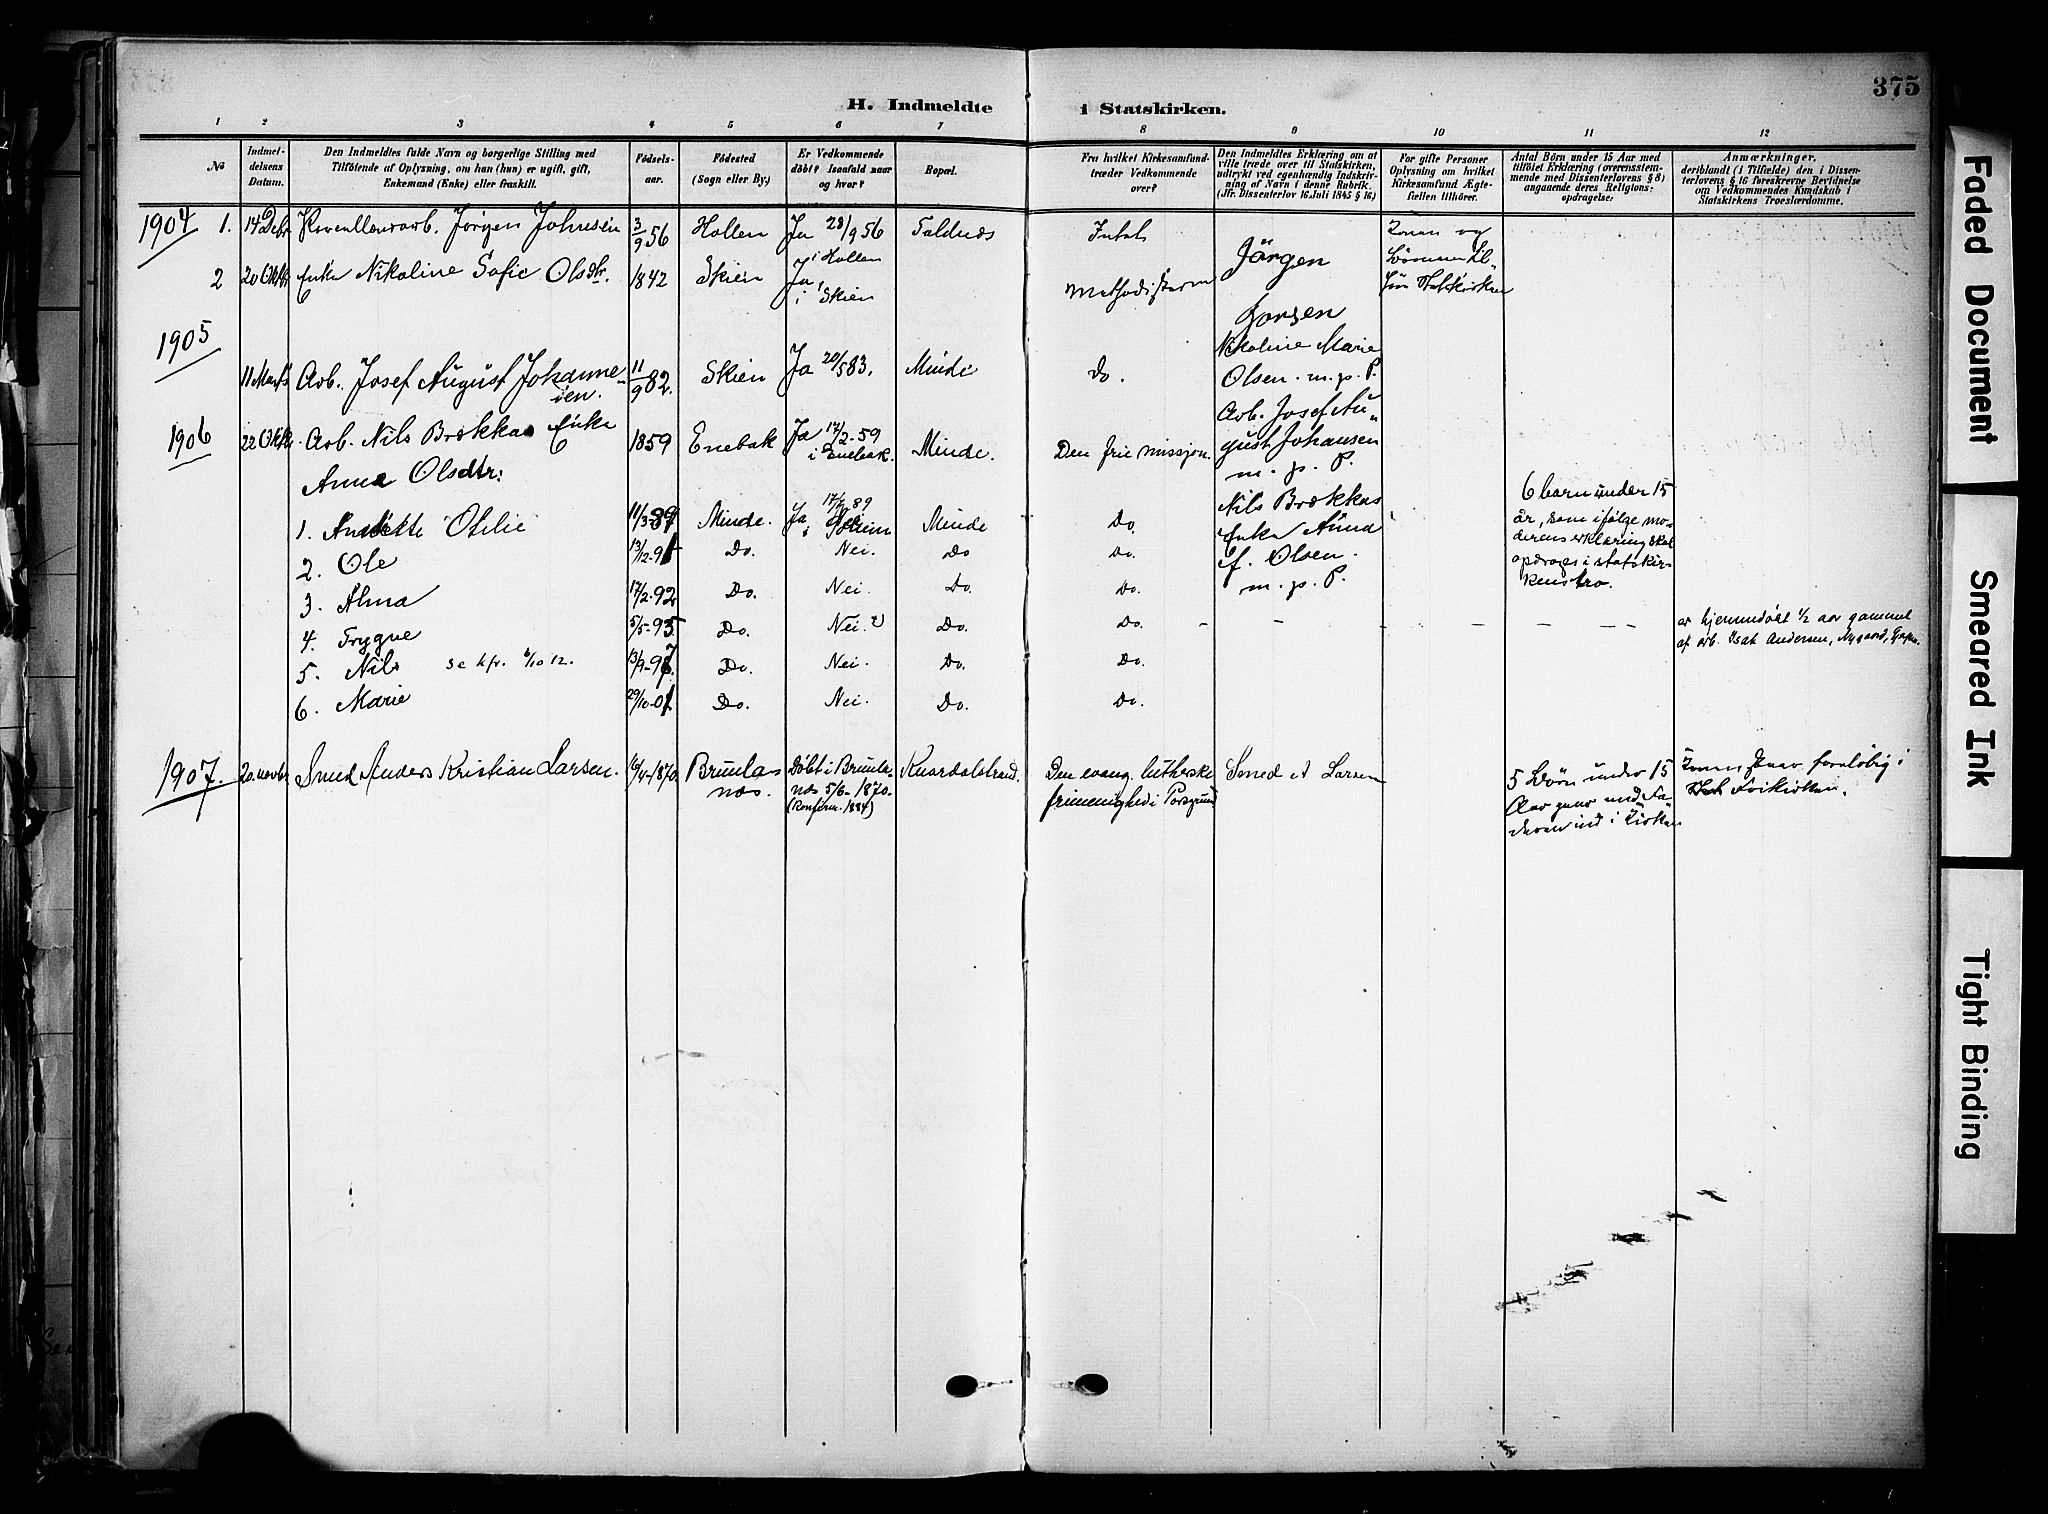 375
H. Indmeldte i Statskirken.
1 2 3 4 5 6 7 8 9 10 11 12
No
Indmel-
delsens
Datum.
Den Indmeldtes fulde Navn og borgerlige Stilling med
Tilföiende af Oplysning, om han (hun) er ugift, gift,
Enkemand (Enke) eller fraskilt.
Födsels-
aar.
Födested
(Sogn eller By.)
Er Vedkommende
döbt? Isaafald naar
og hvor?
Bopæl.
Fra hvilket Kirkesamfund-
træder Vedkommende
over?
Den Indmeldtes Erklæring om at
ville træde over til Statskirken,
udtrykt ved egenhændig Indskriv-
ning af Navn i denne Rubrik.
(Jfr. Dissenterlov 16 Juli 1845 § 16)
For gifte Personer
Oplysning om hvilket
Kirkesamfund Ægte-
fællen tilhörer.
Antal Börn under 15 Aar med
tilföiet Erklæring (overensstem-
mende med Dissenterlovens § 8)
angaaende deres Religions-
opdragelse:
Anmærkninger,
deriblandt (i Tilfælde) den i Dissen-
terlovens § 16 foreskrevne Bevidnelse
om Vedkommendes Kundskab i
Statskirkens Troeslærdomme.
1904 1. 14 Debr Jørgen Johnsen 3/9 56 Hollen Ja 28/9 56
i Hollen
Jörgen
Jorgen
2 20 Oktbr Enke Nikoline Sofie Olsdtr. 1842 Skien Ja,
i Skien
Methodisterne
Nikoline Marie
Olsen. m. p. P.
1905
11 Marts Arb. Josef August Johanne-
sen. 11/9 82. Skien Ja 20/5 83. Minde Do.
Arb. Josef Au-
gust Johansen
m. p. P.
1906 22 Oktbr. Arb. Nils Brækkas Enke
Anna Olsdtr: 1859 Enebak Ja 17/2-59
i Enebak. Minde. Den frie missjon.
Nils Brækkas
Enke Anna
f. Olsen.
m. p. P.
6 barn under 15
år, som ifølge mo-
derens erklæring skal
opdrages i statskir-
kens tro.
1. Otilie 11/3-89 Minde. Ja 89 Minde Do.
2. Ole 13/12-91 Do. Nei. Do Do.
3. Alma 17/2-92 Do. Nei. Do. Do.
4. Trygve 5/5-95 Do. Nei. Do. Do. - - - - - -
er hjemmedøbt 1/2 aar gammel
af arb. Isak Andersen, Nygaard,
5. Nils se kfr. 6/10 12. 13/9-97. Do. Nei. Do. Do.
6. Marie 29/10-01 Do. Nei. Do. Do.
1907. 20. novbr Smed Anders Kristian Larsen. 16/4-1870. Brunla-
næs.
Døbt i Brunla-
næs 5/6-1870.
(Konfirm. 1884)
Knardalstrand.
Den evang. lutherske
frimenighed i Porsgrund
Smed A Larsen
5 Børn under 15
Aar gaar med Fa-
deren ind i Kirken
Konen staar foreløbig i
Frikirken.
Faded Document
Smeared Ink
Tight Binding